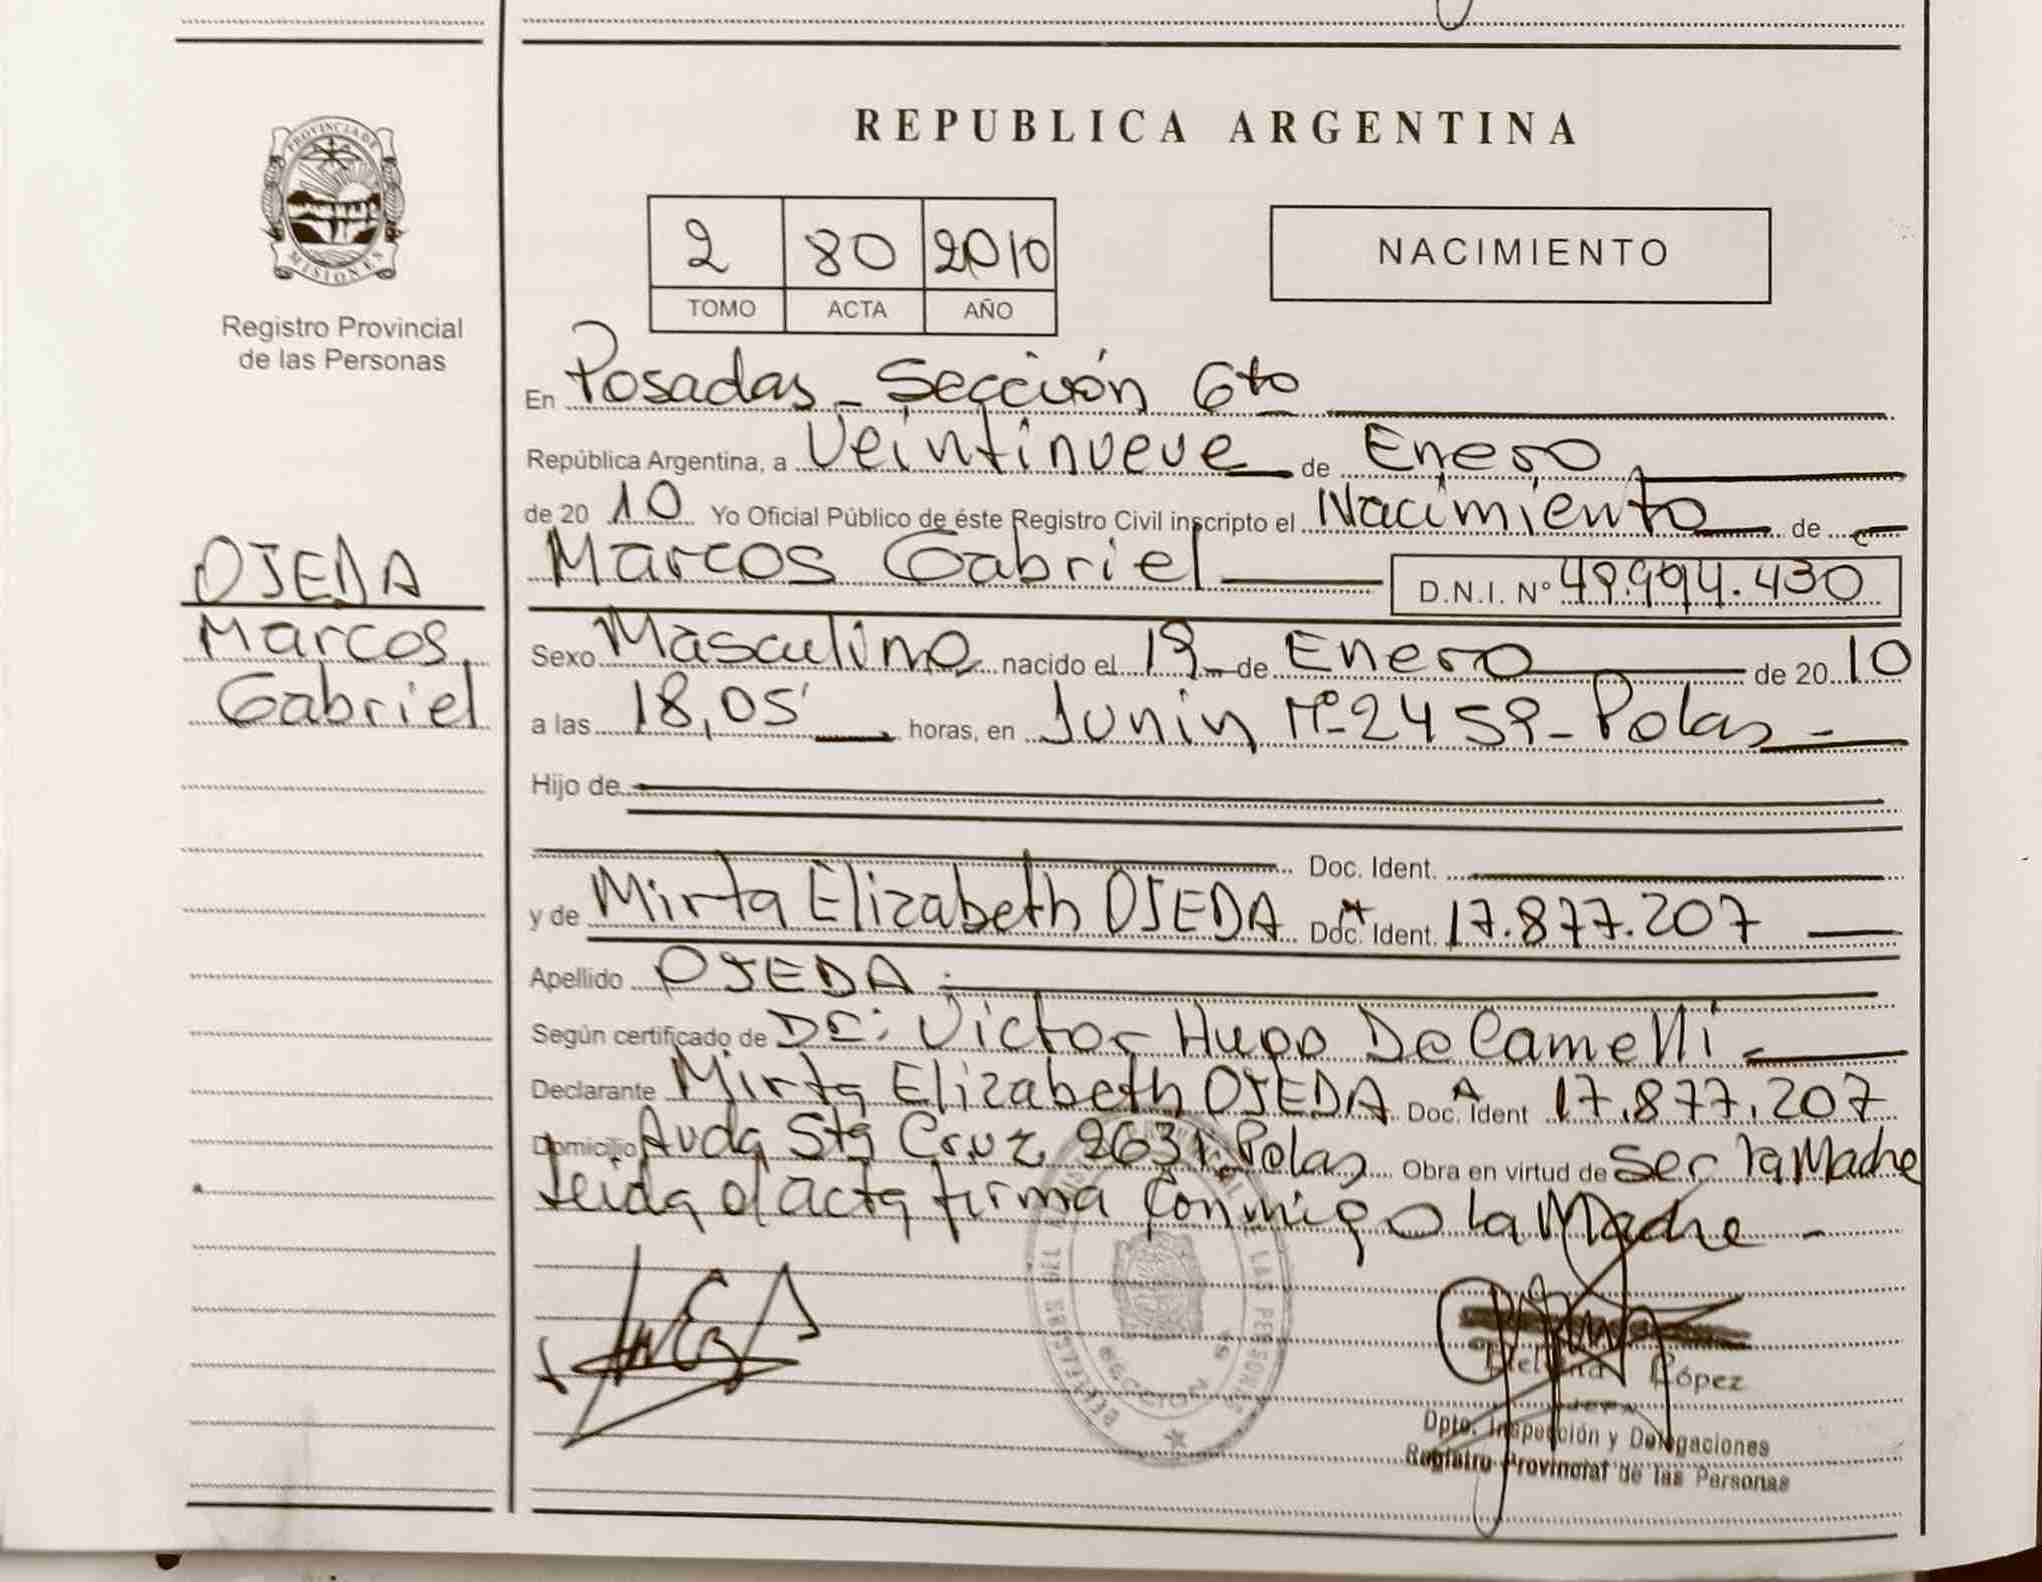 REPUBLICA ARGENTINA
PROVINCIA DE
MISIONES
Registro Provincial
de las Personas
2 80 2010
TOMO ACTA AÑO
NACIMIENTO
En Posadas - Sección 6to
República Argentina, a Veintinueve de Enero
de 20 10 Yo Oficial Público de éste Registro Civil inscripto el Nacimiento de
OJEDA
Marcos
Gabriel
Marcos Gabriel D.N.I. Nº 49.994.430
Sexo Masculino nacido el 19 de Enero de 20 10
a las 18,05' horas, en Junin Nº 2459 - Pdas -
Hijo de
Doc. Ident.
y de Mirta Elizabeth OJEDA Doc. Ident. 17.877.207
Apellido OJEDA
Según certificado de Dr: Victor Hugo De Camelli -
Declarante Mirta Elizabeth OJEDA Doc. Ident 17.877.207
Domicilio Avda Sta Cruz 2631. Pdas Obra en virtud de Ser la Madre
Leida el acta firma conmigo la Madre -
SECCION
López
JEFA
Dpto. Inspección y Delegaciones
Registro Provincial de las Personas